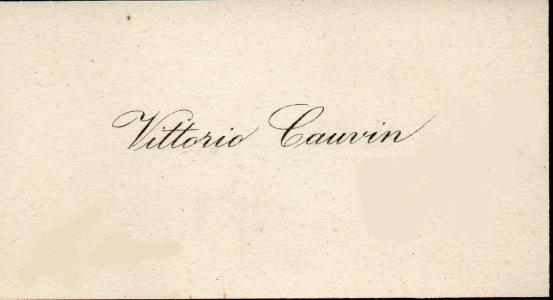 Vittorio Cauvin